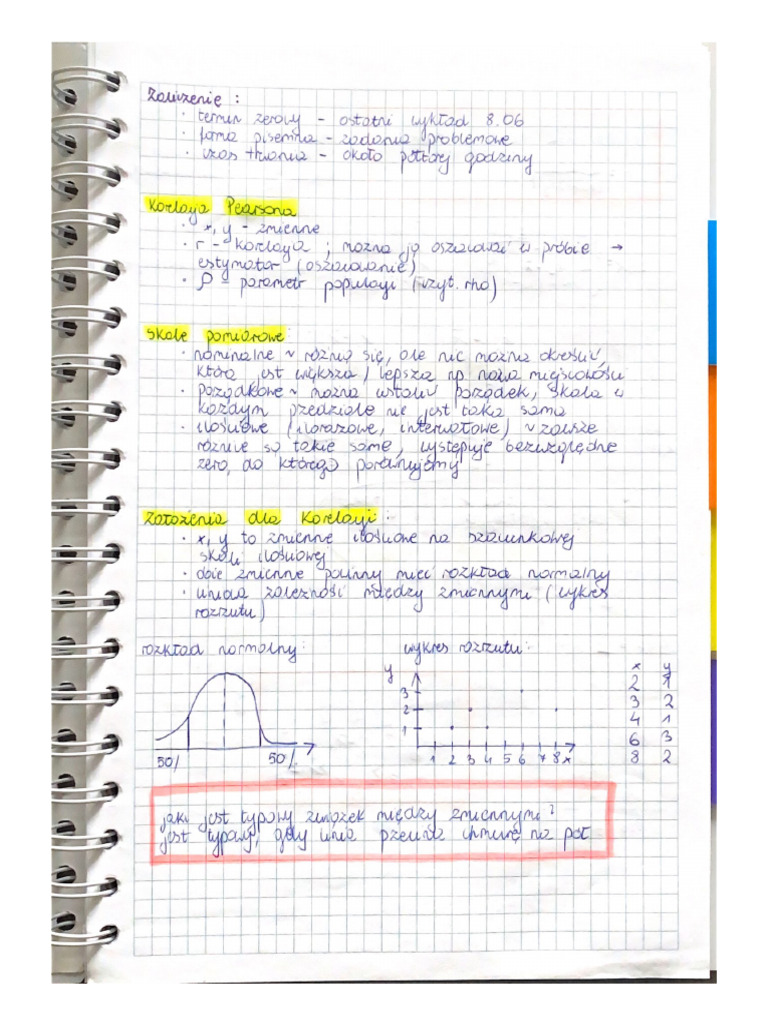 Zaliczenie :
· termin zerowy - ostatni wykład 8.06
· forma pisemna - zadania problemowe
· czas trwania - około półtorej godziny
Korelacja Pearsona
· x, y - zmienne
· r - korelacja ; można ją oszacować w próbie →
estymator (oszacowanie)
· ρ = parametr populacji (czyt. rho)
Skale pomiarowe:
· nominalne ~ różnią się, ale nie można określić,
która jest większa / lepsza np nazwa miejscowości
· porządkowe ~ można ustalić porządek, skala w
każdym przedziale nie jest taka sama
· ilościowe (ilorazowe, interwałowe) ~ zawsze
różnice są takie same, występuje bezwzględne
zero, do którego porównujemy
Założenia dla korelacji:
· x, y to zmienne ilościowe na szacunkowej
skali ilościowej
· obie zmienne powinny mieć rozkład normalny
· liniowa zależność między zmiennymi (wykres
rozrzutu)
rozkład normalny: wykres rozrzutu:
50% 50%
y
3
2
1
1 2 3 4 5 6 7 8 x
x y
2 1
3 2
4 1
6 3
8 2
jaki jest typowy związek między zmiennymi?
jest typowy, gdy linia przecina chmurę na pół